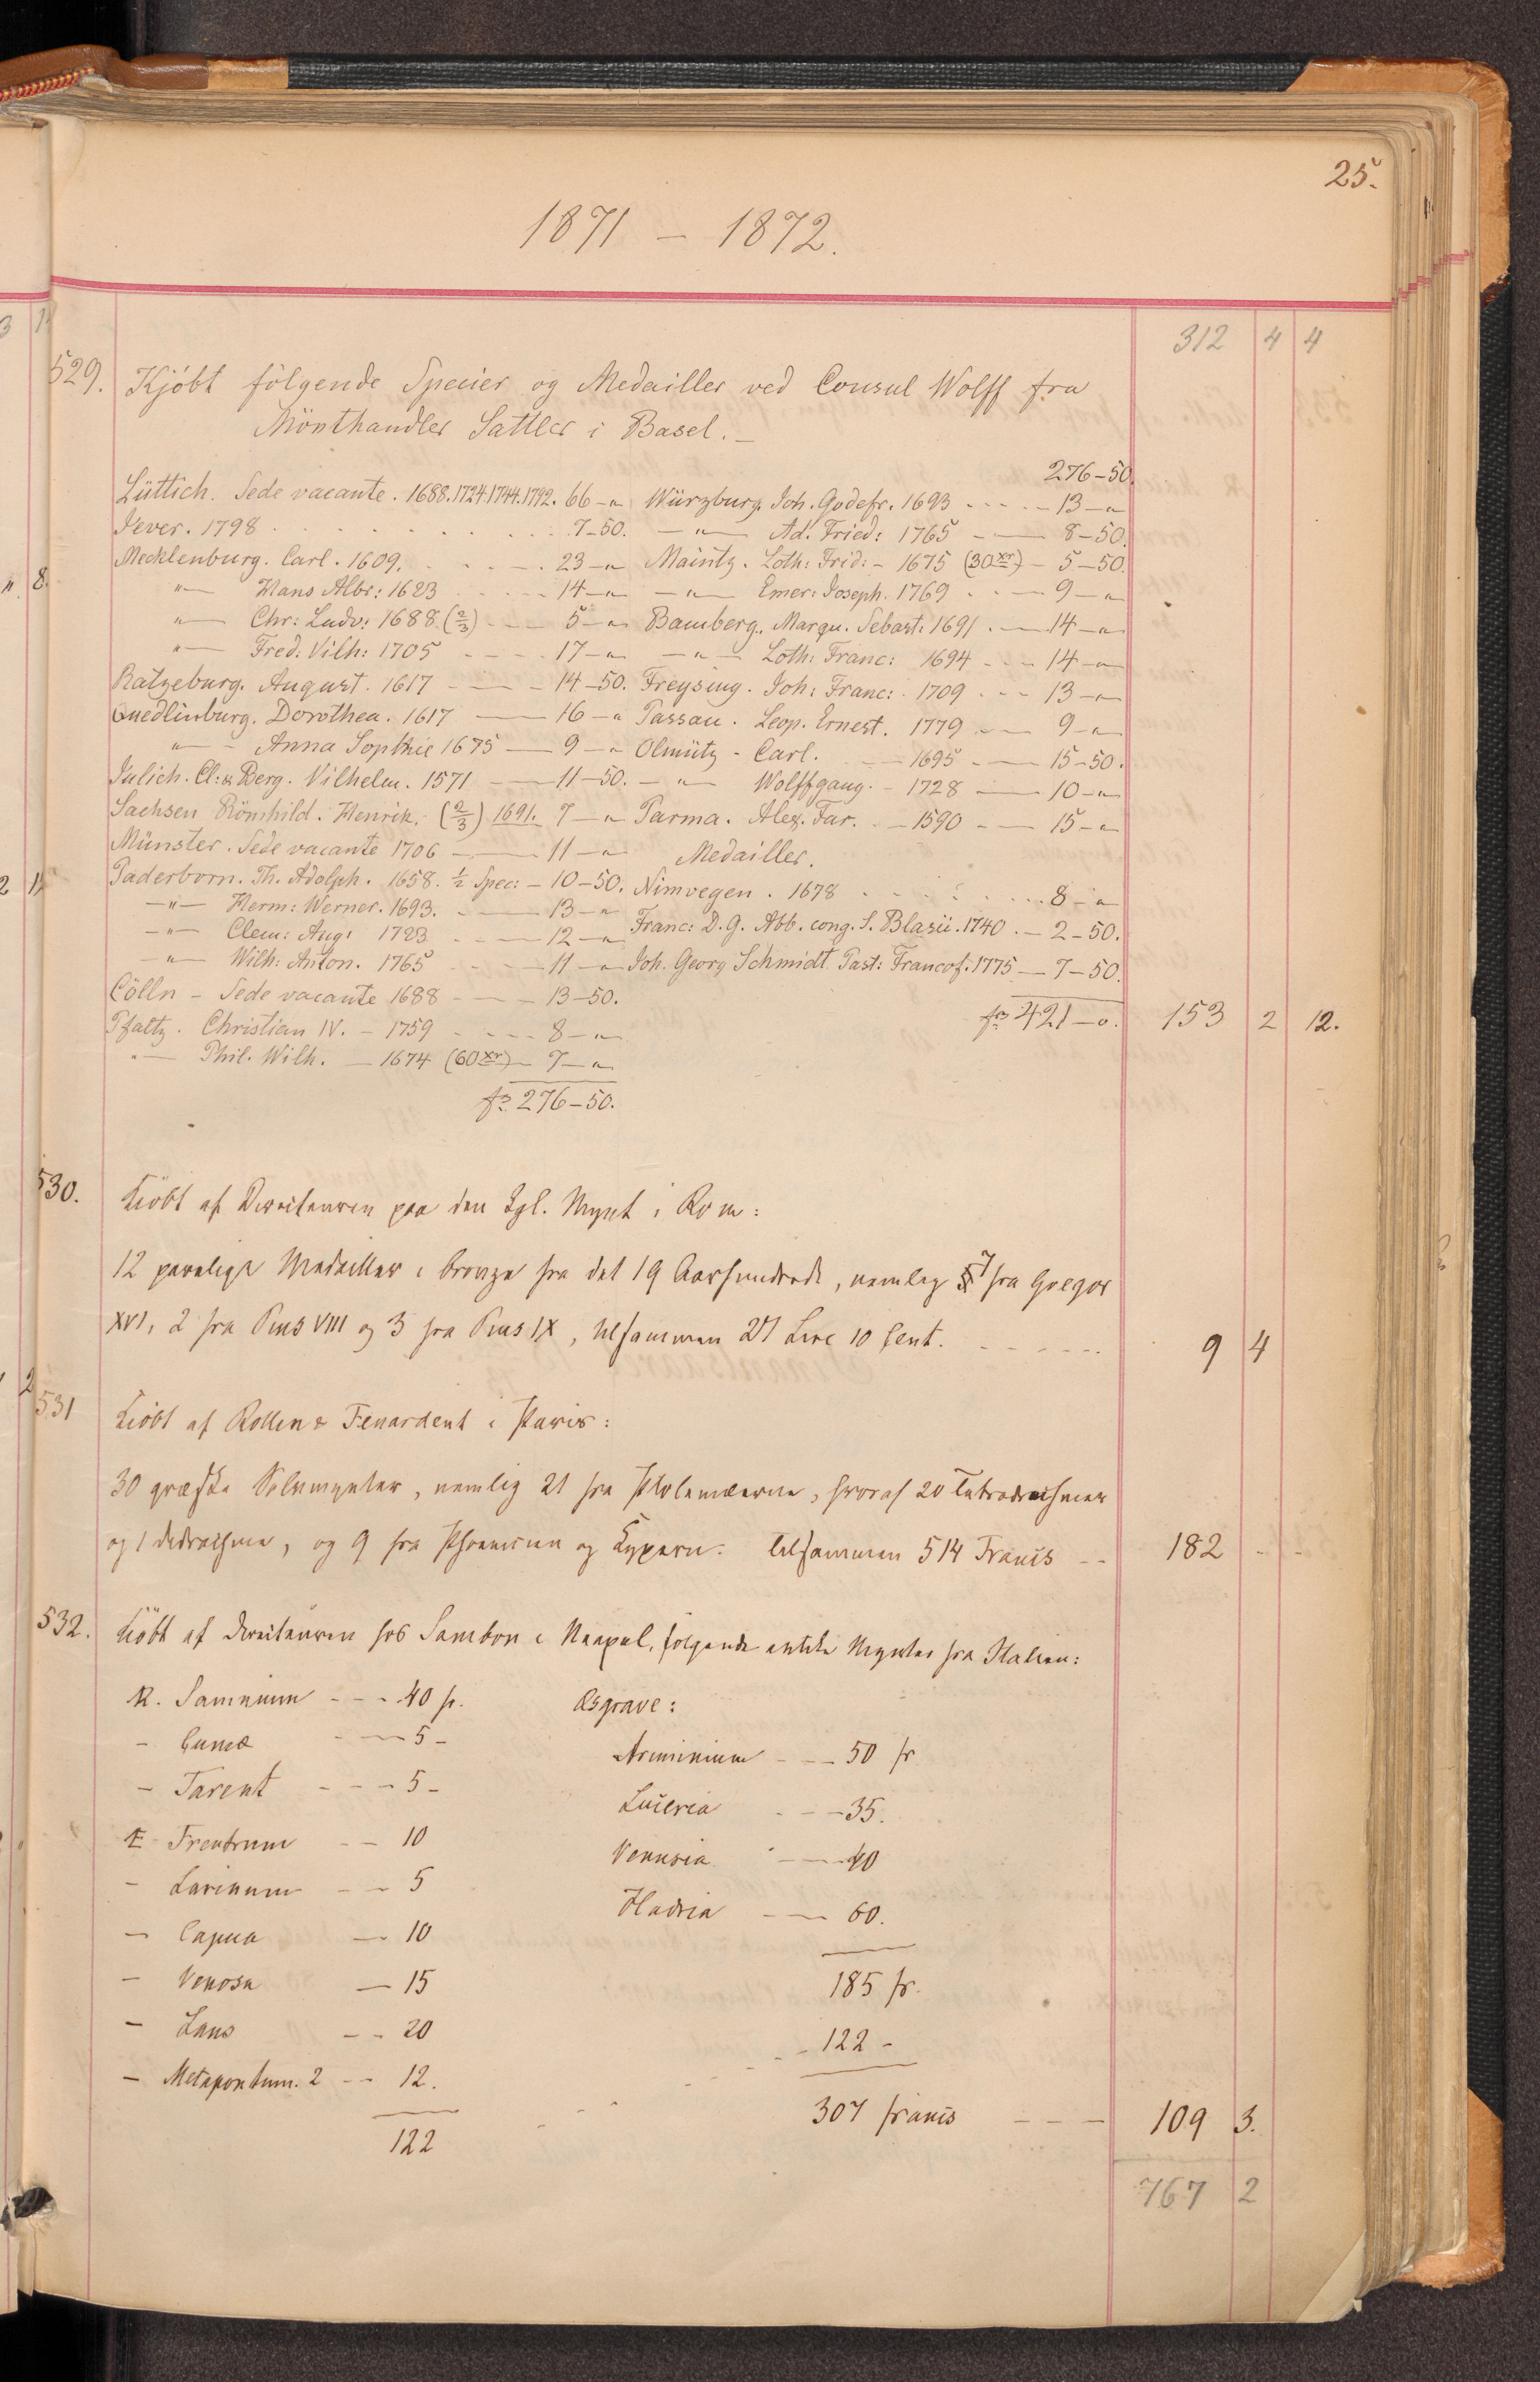 25.
1871 – 1872.
312 4 4
529. Kjöbt fölgende Specier og Medailler ved Consul Wolff fra
Mönthandler Sattler i Basel. –
276–50.
Lüttich. Sede vacante. 1688.1724.1744.1792. 66–"
Jever. 1798 . . . . . . 7–50.
Mecklenburg. Carl. 1609. . . . 23–"
"– Hans Albr: 1623 . . . 14–"
"– Chr: Ludv: 1688 (2/3) – – 5–"
"– Fred: Vilh: 1705 – – – 17–"
Ratzeburg. August. 1617 – – – 14–50.
Quedlinburg. Dorothea. 1617 – 16–"
"– Anna Sophie 1675 – 9–"
Julich. Cl: & Berg. Vilhelm. 1571 – 11–50.
Sachsen Römhild. Henrik. (2/3) 1691. 7–"
Münster. Sede vacante 1706 – – 11–"
Paderborn. Th. Adolph. 1658. 1/2 Spec: – 10–50.
–"– Herm: Werner. 1693. – – 13–"
–"– Clem: Aug: 1723 – – 12–"
–"– Wilh: Anton. 1765 – – 11–"
Cölln – Sede vacante 1688 – – – 13–50.
Pfaltz. Christian IV. – 1759 – – – 8–"
"– Phil. Wilh. – 1674 (60 xr) – 7–"
frs 276–50.
Würzburg. Joh. Godefr. 1693 – – – 13–"
–"– Ad. Fried: 1765 – – 8–50.
Maintz. Loth: Frid: – 1675 (30 xr) – 5–50.
–"– Emer: Joseph. 1769 . . – 9–"
Bamberg. Marqu. Sebast: 1691 . – 14–"
–"– Loth: Franc: 1694 – – – 14–"
Freysing. Joh: Franc: 1709 – – – 13–"
Passau. Leop. Ernest. 1779 – – 9–"
Olmütz – Carl. – – 1695 – – 15–50.
–"– Wolffgang. – 1728 – 10–"
Parma. Alex. Far. – 1590 – – 15–"
Medailler.
Nimvegen. 1678 . . . . . . 8–"
Franc: D. G. Abb. cong. S. Blasii. 1740 . – 2–50.
Joh. Georg Schmidt Past: Francof. 1775 – 7–50.
frs 421–o. 153 2 12.
530. Kiöbt af Directeuren paa den Kgl. Mynt i Rom:
12 pavelige Medailler i bronze fra det 19 Aarhundrede, nemlig 7 fra Gregor
XVI, 2 fra Pius VIII og 3 fra Pius IX, tilsammen 27 Lire 10 Cent. – – – – 9 4
531 Kiöbt af Rollin & Feuardent i Paris:
30 græske Sølvmynter, nemlig 21 fra Ptolemæerne, hvoraf 20 Tetradrachmer
og 1 didrachme, og 9 fra Phoenicien og Kypern. Tilsammen 514 Francs – – 182 – –
532. Kiöbt af directeuren hos Sambon i Neapel, følgende antike Mynter fra Italien:
Æ. Samnium – – – 40 fr.
– Cumæ – – 5 –
– Tarent – – – 5 –
Æ Frentrum – – 10
– Larinum – – 5
– Capua – – 10
– Venosa – 15
– Laus – – 20
– Metapontum. 2 – – 12.
122
Æs grave:
Ariminium – – – 50 fr
Luceria – – – 35.
Venusia – – 40
Hadria – – 60.
185 fr.
– – 122 –
307 francs – – – 109 3.
767 2